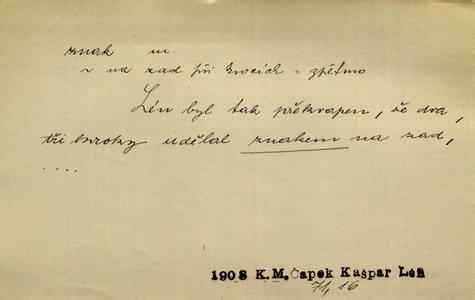 znak m.
~ na zad při krocích = zpětmo
Lén byl tak překvapen, že dva,
tři kroky udělal znakem na zad,
....
1908 K.M.Čapek Kašpar Lén
71, 16